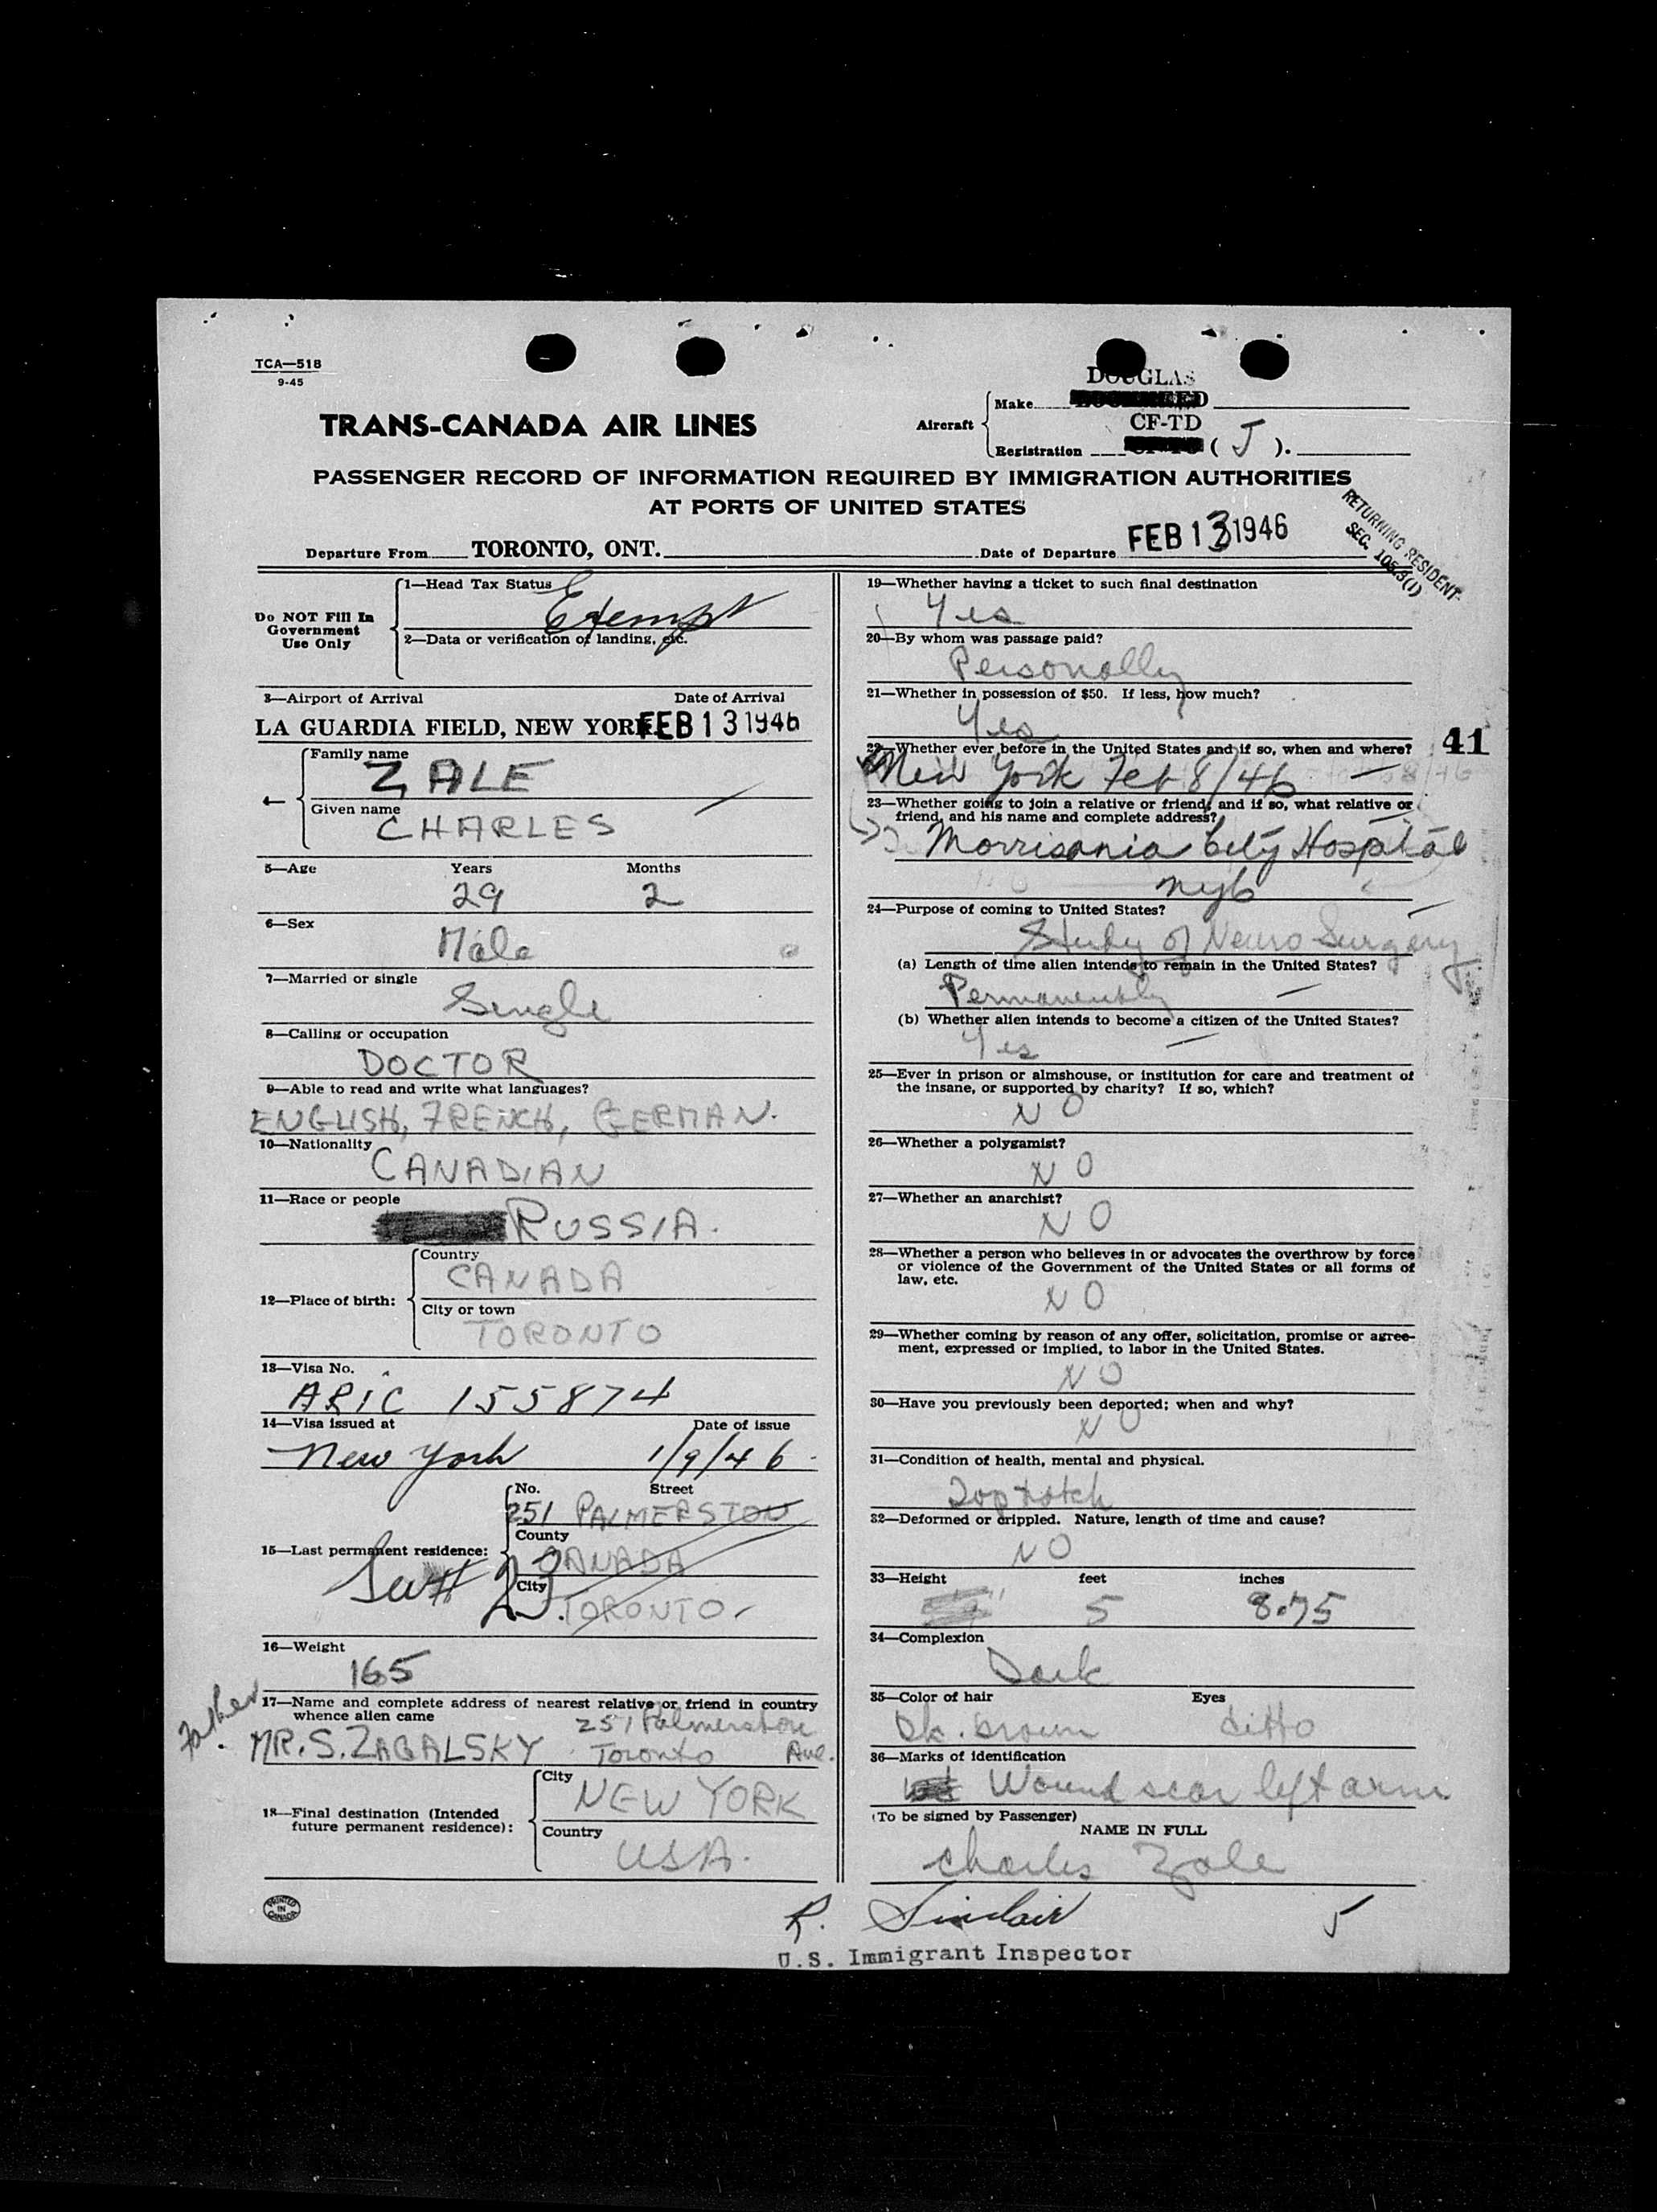 TCA—518
9-45
DOUGLAS
Make
TRANS-CANADA AIR LINES
Aircraft
CF-TD
Registration ( J ).
PASSENGER RECORD OF INFORMATION REQUIRED BY IMMIGRATION AUTHORITIES
AT PORTS OF UNITED STATES
RETURNING RESIDENT
SEC. 105.3(1)
Departure From TORONTO, ONT. Date of Departure FEB 13 1946
Do NOT Fill In
Government
Use Only
1—Head Tax Status
Exempt
2—Data or verification of landing, etc.
3—Airport of Arrival Date of Arrival
LA GUARDIA FIELD, NEW YORK FEB 13 1946
4—
Family name
ZALE
Given name
CHARLES
5—Age Years Months
29 2
6—Sex
Male
7—Married or single
Single
8—Calling or occupation
DOCTOR
9—Able to read and write what languages?
ENGLISH, FRENCH, GERMAN.
10—Nationality
CANADIAN
11—Race or people
RUSSIA.
12—Place of birth:
Country
CANADA
City or town
TORONTO
13—Visa No.
ARIC 155874
14—Visa issued at Date of issue
New York 1/9/46
15—Last permanent residence:
No. Street
251 PALMERSTON
County
CANADA
City
TORONTO
16—Weight
165
Father
17—Name and complete address of nearest relative or friend in country
whence alien came
251 Palmerston
MR. S. ZAGALSKY Toronto Ave.
18—Final destination (Intended
future permanent residence):
City
NEW YORK
Country
USA.
PRINTED
IN
CANADA
19—Whether having a ticket to such final destination
Yes
20—By whom was passage paid?
Personally
21—Whether in possession of $50. If less, how much?
Yes
41
22—Whether ever before in the United States and if so, when and where?
New York Feb 8/46
23—Whether going to join a relative or friend, and if so, what relative or
friend, and his name and complete address?
Morrisania City Hospital
NYC
24—Purpose of coming to United States?
Study of Neuro Surgery
(a) Length of time alien intends to remain in the United States?
Permanently
(b) Whether alien intends to become a citizen of the United States?
Yes
25—Ever in prison or almshouse, or institution for care and treatment of
the insane, or supported by charity? If so, which?
NO
26—Whether a polygamist?
NO
27—Whether an anarchist?
NO
28—Whether a person who believes in or advocates the overthrow by force
or violence of the Government of the United States or all forms of
law, etc.
NO
29—Whether coming by reason of any offer, solicitation, promise or agree-
ment, expressed or implied, to labor in the United States.
NO
30—Have you previously been deported; when and why?
NO
31—Condition of health, mental and physical.
Top notch
32—Deformed or crippled. Nature, length of time and cause?
NO
33—Height feet inches
5 8.75
34—Complexion
Dark
35—Color of hair Eyes
Dk. brown ditto
36—Marks of identification
Wound scar left arm
(To be signed by Passenger)
NAME IN FULL
Charles Zale
R. Sinclair
U.S. Immigrant Inspector